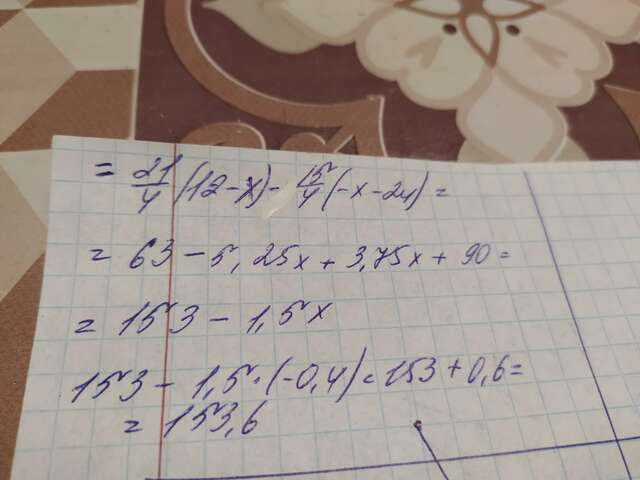 = 21/4 (12 - x) - 15/4 (-x - 24) =
= 63 - 5,25x + 3,75x + 90 =
= 153 - 1,5x
153 - 1,5 · (-0,4) = 153 + 0,6 =
= 153,6